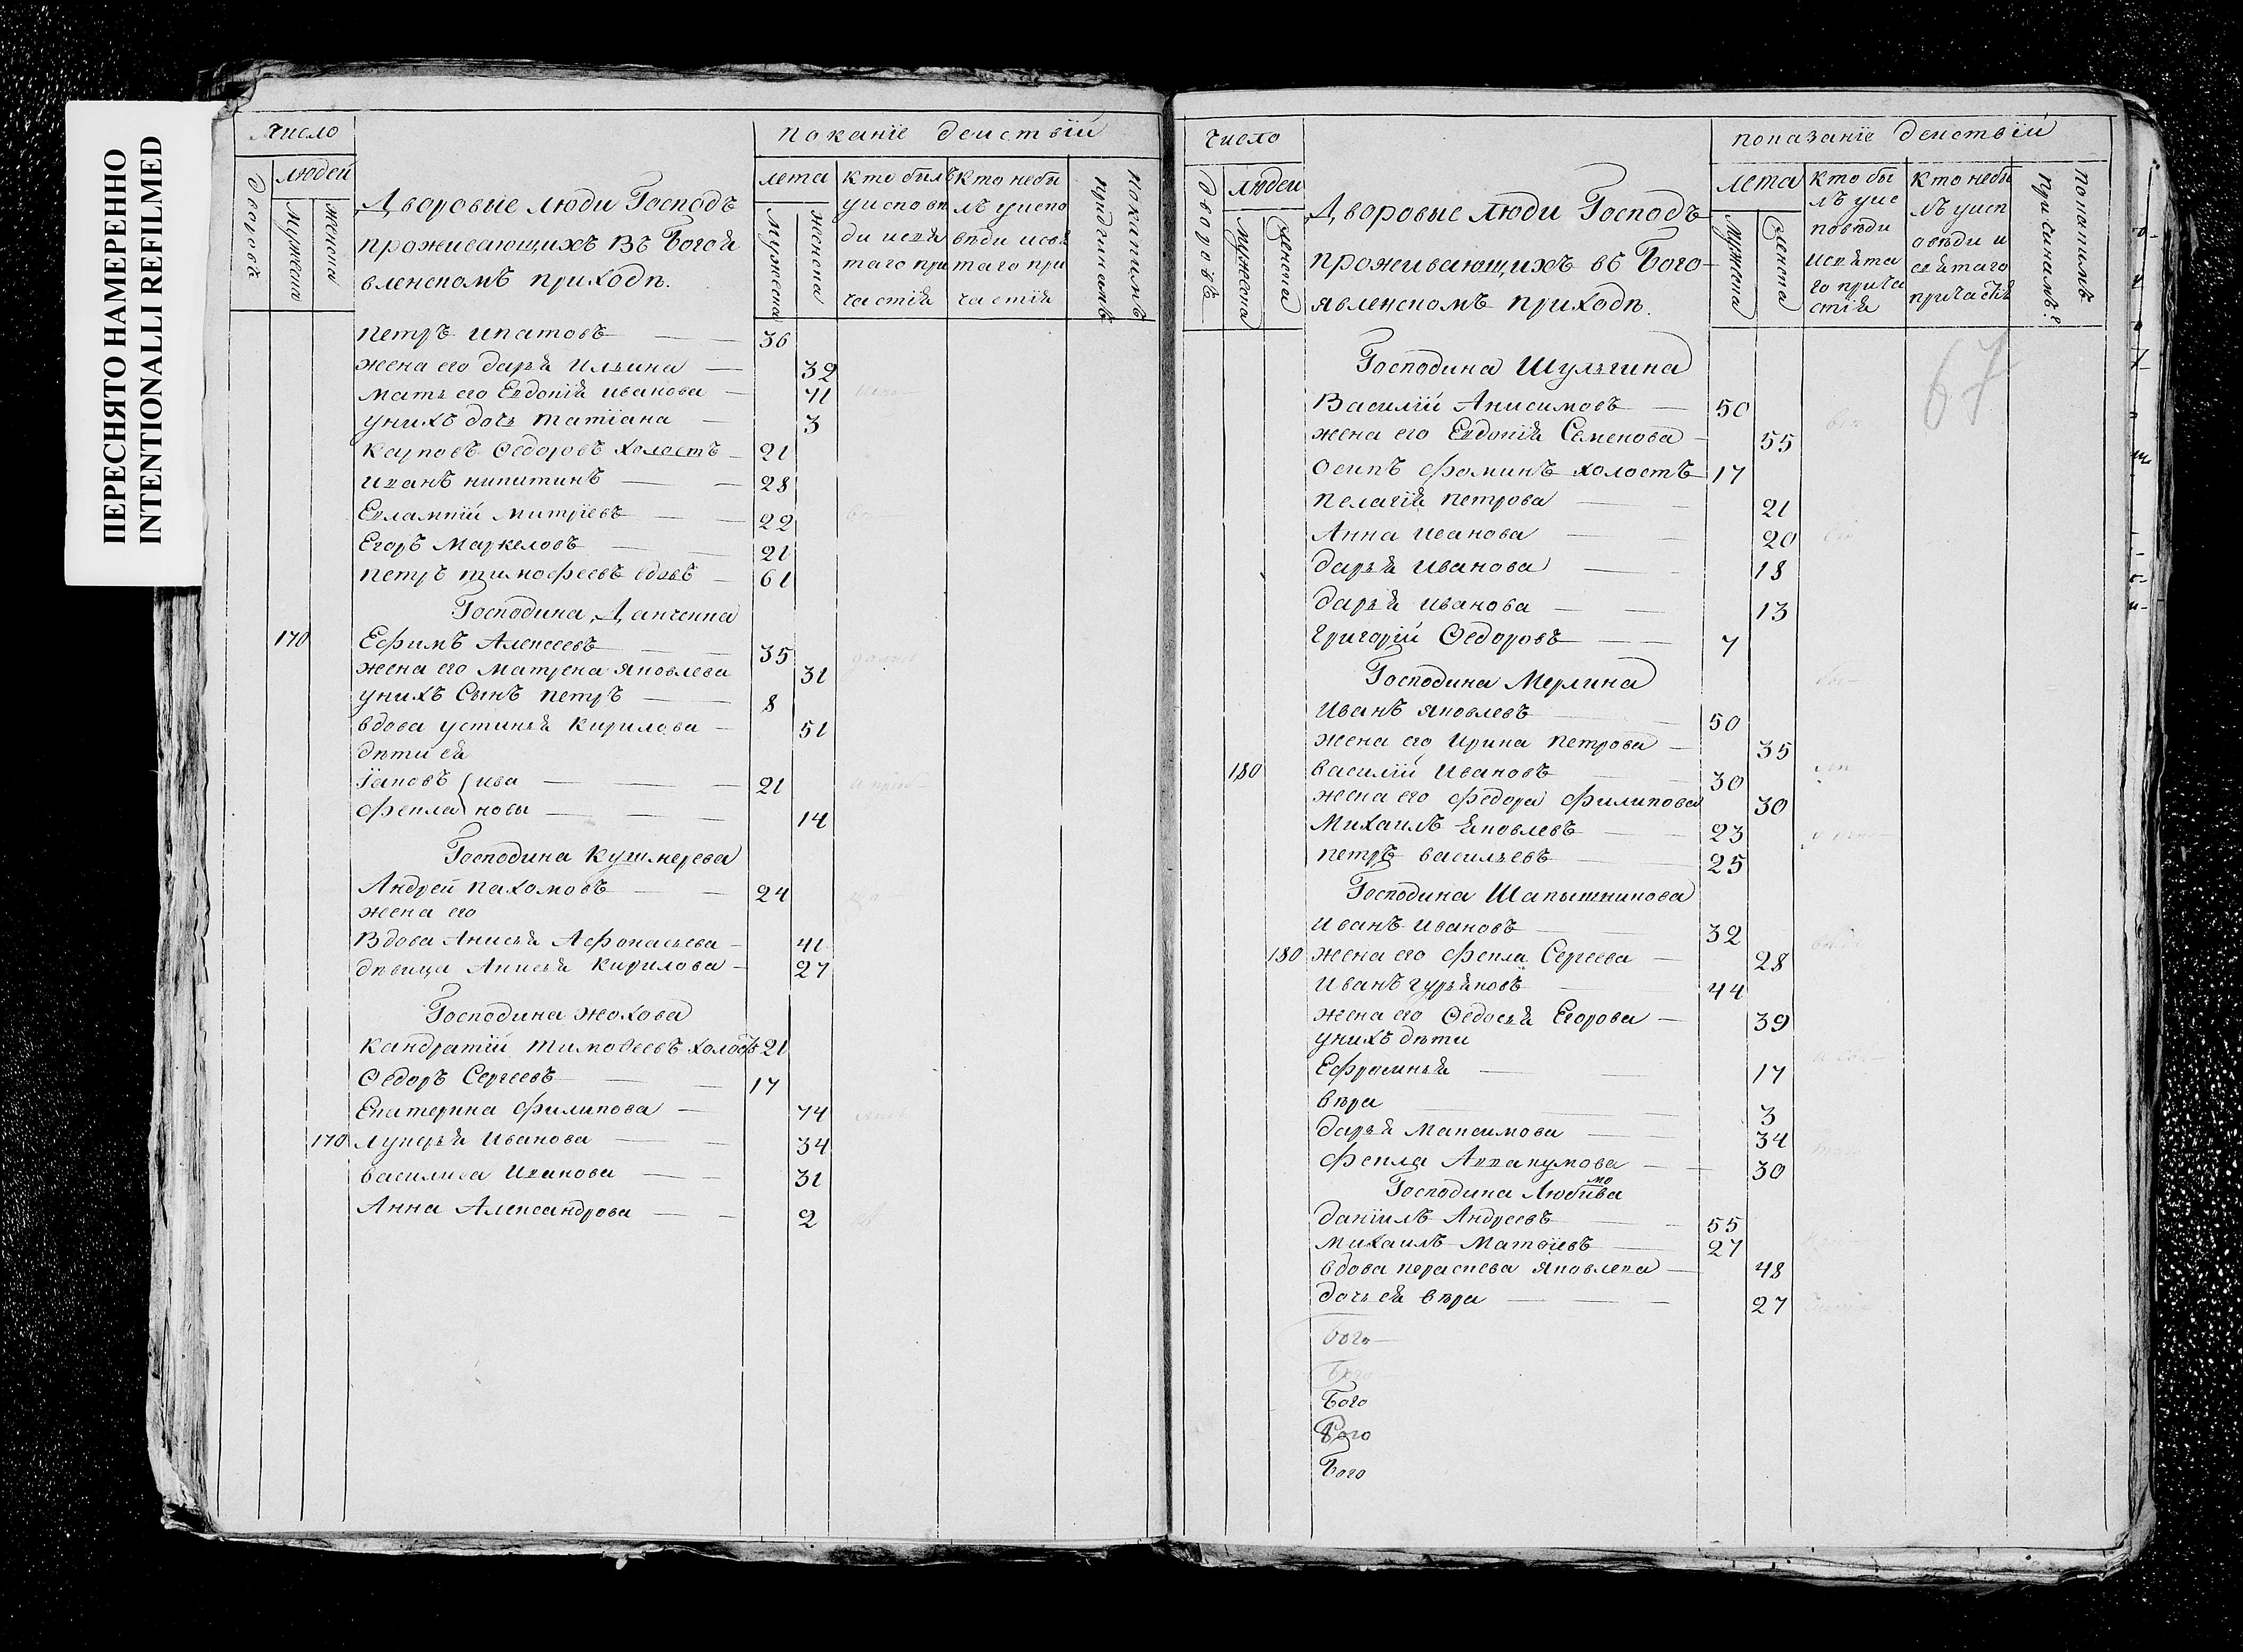 ПЕРЕСНЯТО НАМЕРЕННО
INTENTIONALLI REFILMED
число
людей
дворовъ
мужеска
женска
Дворовые люди Господъ
проживающихъ Въ Богоя
вленскомъ приходѣ.
поканїе деиствїй
лета
мужеска
женска
кто былъ
уисповѣ
ди исвя
таго при
частїя
кто небы
лъ уиспо
вѣди исвя
таго при
частїя
покакимъ
причинамъ
петръ ипатовъ 36
жена его дарья Ильина 32
мать его Евдокїя иванова 71
унихъ дочь татїана 3
карповъ Ѳедоровъ холостъ 21
иванъ никитинъ 28
Евлампїй митрїевъ 22
Егоръ Маркеловъ 21
петръ тимофеевъ вдовъ 61
Господина Данченка
170 Ефимъ Алексеевъ 35
жена его матрена яковлева 31
унихъ сынъ петръ 8
вдова устинья кирилова 51
дѣти ея
Їаковъ ива 21
фекла новы 14
Господина кушмерева
Андрей пахомовъ 24
жена его
Вдова Анисья Афонасьева 41
дѣвица Анисья кирилова 27
Господина жохова
кандратїй тимоѳеевъ холостъ 21
Ѳедоръ Сергеевъ 17
Екатерина филипова 74
170 лукерья Иванова 34
василиса Иванова 31
Анна Александрова 2
число
людеи
дворовъ
мужеска
женска
Дворовые люди Господъ
проживающихъ въ Бого
явленскомъ приходѣ.
показанїе деиствїй
лета
мужеска
женска
кто бы
лъ уис
повѣди
исвята
го прича
стїя
кто небы
лъ уисп
овѣди и
святаго
причастїя
покакимъ
причинамъ
67
Господина Шульгина
Василїй Анисимовъ 50
жена его Евдокїя Семенова 55
осипъ фоминъ холостъ 17
пелагїя петрова 21
Анна Иванова 20
дарья иванова 18
дарья иванова 13
григорїй Ѳедоровъ 7
Господина Мерлина
иванъ яковлевъ 50
жена его ирина петрова 35
180 василїй Ивановъ 30
жена его федора филипова 30
михаилъ яковлевъ 23
петръ васильевъ 25
Господина Шапышникова
иванъ ивановъ 32
180 жена его фекла Сергеева 28
иванъ гурьяновъ 44
жена его Ѳедосья Егорова 39
унихъ дѣти
Ефросинья 17
вѣра 3
дарья максимова 34
фекла Аввакумова 30
Господина Любива
мо
данїилъ Андреевъ 55
михаилъ Матѳїевъ 27
вдова параскева яковлева 48
дочь ея вѣра 27
бого
бого
Бого
Бого
Бого